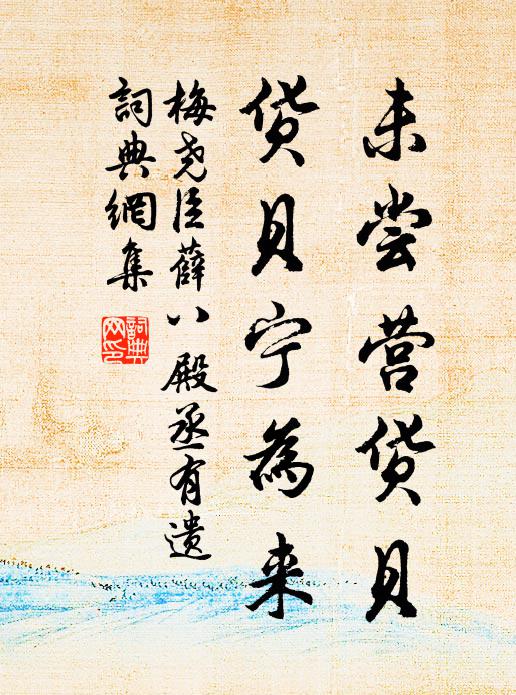 未尝营货贝
货贝宁為来
梅尧臣薛八殿丞有遗
詞典網集
詞典网印